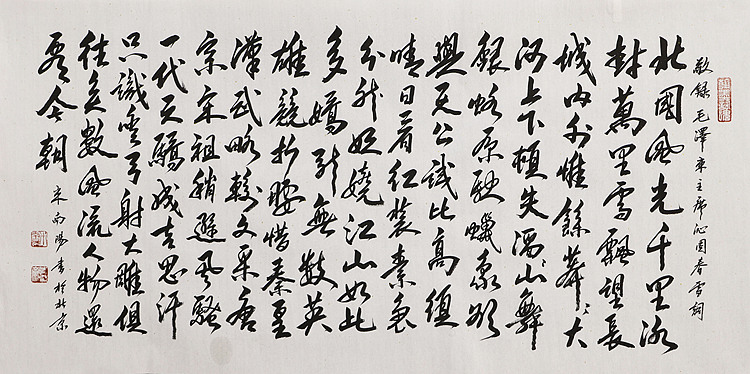 敬錄毛澤東主席沁園春雪詞
北國風光千里冰
封萬里雪飄望長
城內外惟餘莽〻大
河上下頓失滔〻山舞
銀蛇原馳蠟象欲
與天公試比高須
晴日看紅裝素裹
分外妖嬈江山如此
多嬌引無數英
雄競折腰惜秦皇
漢武略輸文采唐
宗宋祖稍遜風騷
一代天驕成吉思汗
只識彎弓射大雕俱
往矣數風流人物還
看今朝
書於北京